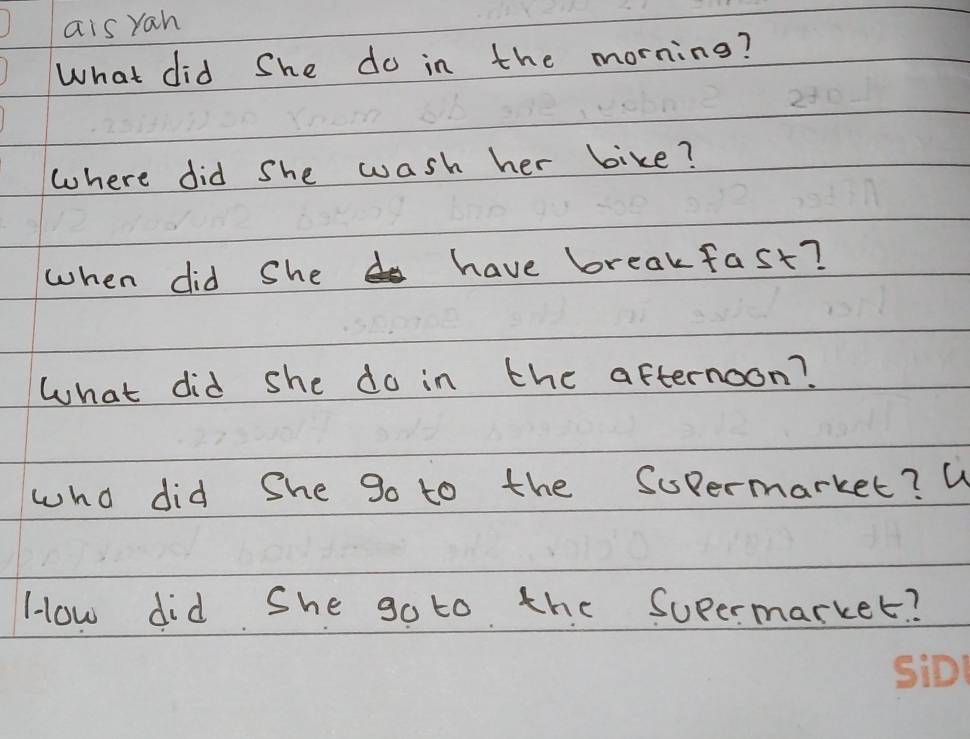 aisyah
What did She do in the morning?
Where did She wash her bike?
When did She have breakfast?
What did she do in the afternoon?
who did She go to the Supermarket?
How did She go to the Supermarket?
SiD